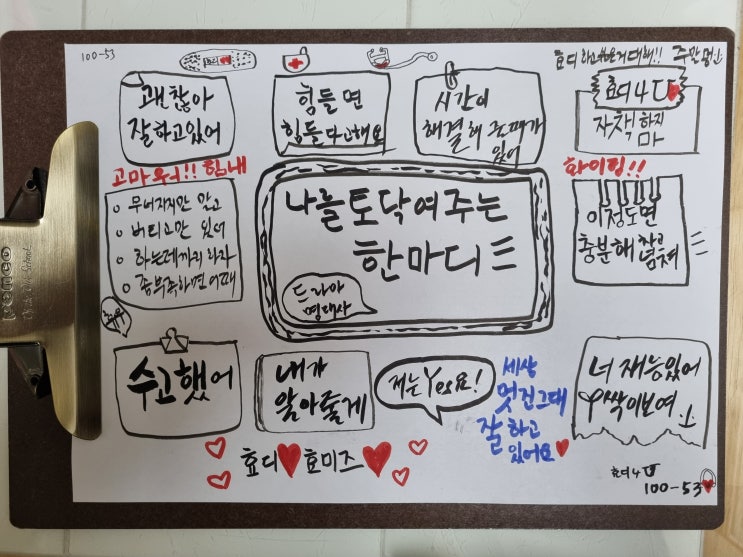 100-53
효디
효디 하고싶은거 대해!! 주만 명심
괜찮아
잘하고있어
힘들면
힘들다고해요
시간이
해결해 줄때가
있어
효디 4 U
자책하지
마
고마워!! 힘내
화이팅!!
무너지지만 않고
버티고만 있어
하는데까지 하자
좀 부족하면 어때
휴우
나를 토닥여주는
한마디
드라마
명대사
이정도면
충분해 참고
넘쳐
수고했어
내가
알아줄게
저는 Yes요!
세상
멋진그대
잘하고
있어요
너 재능있어
싹이보여
효디 효미즈
효디 4 U
100-53